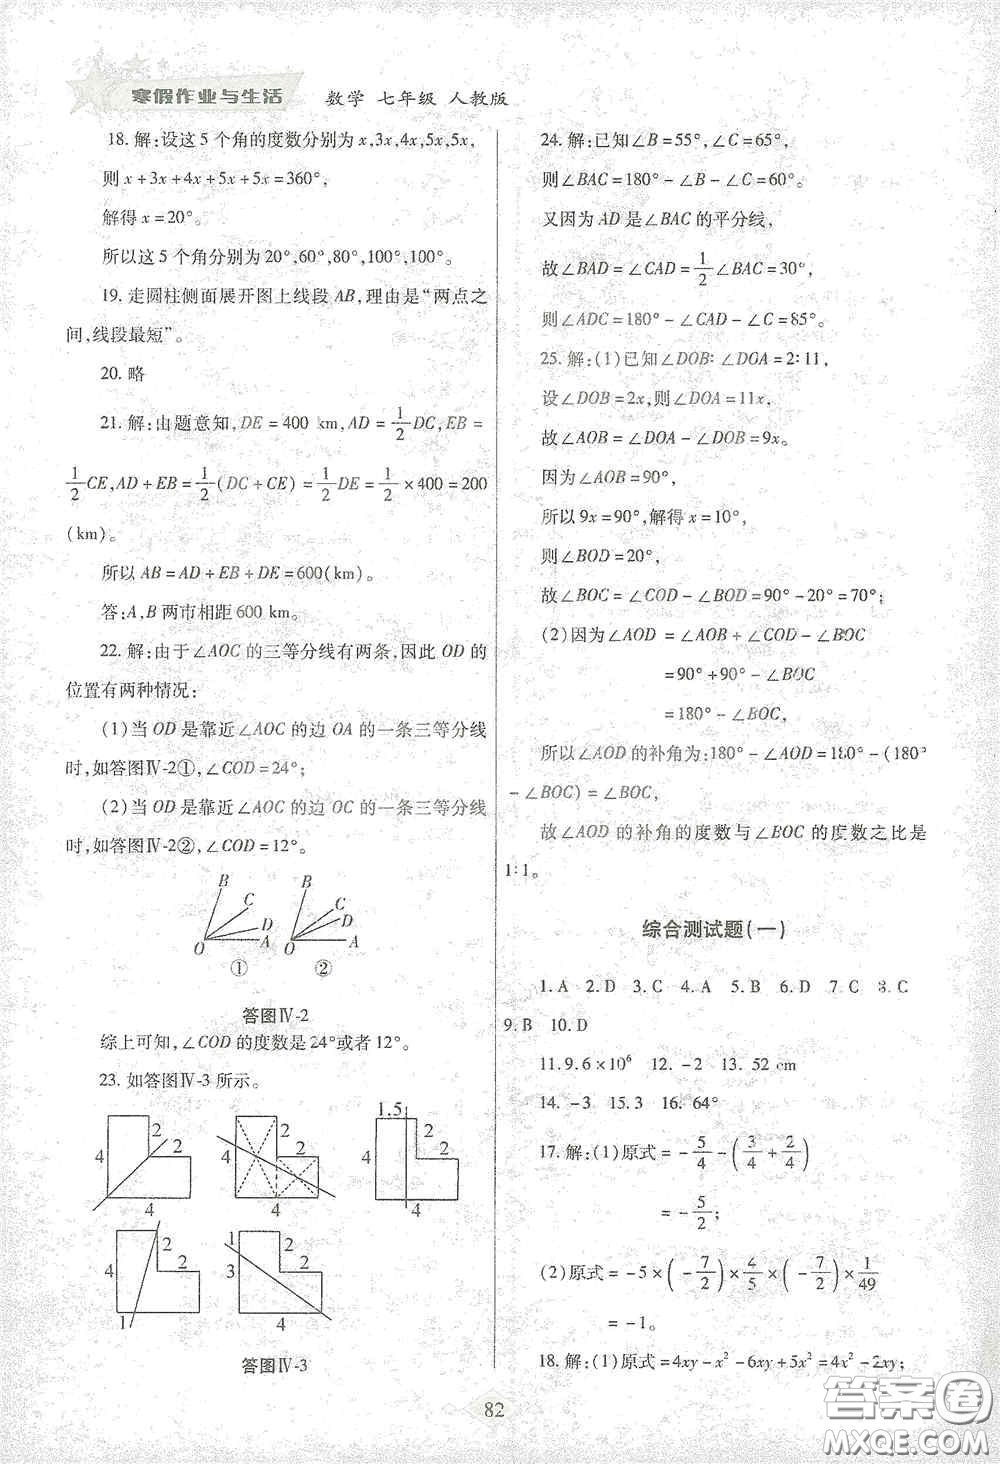 寒假作业与生活 数学 七年级 人教版
18. 解:设这 5 个角的度数分别为 x,3x,4x,5x,5x,
则 x+3x+4x+5x+5x=360°,
解得 x=20°。
所以这 5 个角分别为 20°,60°,80°,100°,100°。
19. 走圆柱侧面展开图上线段 AB,理由是“两点之
间,线段最短”。
20. 略
21. 解:由题意知,DE=400 km,AD=1/2DC,EB=
1/2CE,AD+EB=1/2(DC+CE)=1/2DE=1/2×400=200
(km)。
所以 AB=AD+EB+DE=600(km)。
答:A,B 两市相距 600 km。
22. 解:由于∠AOC 的三等分线有两条,因此 OD 的
位置有两种情况:
(1)当 OD 是靠近∠AOC 的边 OA 的一条三等分线
时,如答图Ⅳ-2①,∠COD=24°;
(2)当 OD 是靠近∠AOC 的边 OC 的一条三等分线
时,如答图Ⅳ-2②,∠COD=12°。
B C D A O ①
B C D A O ②
答图Ⅳ-2
综上可知,∠COD 的度数是 24°或者 12°。
23. 如答图Ⅳ-3 所示。
4 2 2 4
4 2 2 4
1.5 4 2 2 4
4 2 2 1
1 3 2 2 4
答图Ⅳ-3
24. 解:已知∠B=55°,∠C=65°,
则∠BAC=180°-∠B-∠C=60°。
又因为 AD 是∠BAC 的平分线,
故∠BAD=∠CAD=1/2∠BAC=30°,
则∠ADC=180°-∠CAD-∠C=85°。
25. 解:(1)已知∠DOB:∠DOA=2:11,
设∠DOB=2x,则∠DOA=11x,
故∠AOB=∠DOA-∠DOB=9x。
因为∠AOB=90°,
所以 9x=90°,解得 x=10°,
则∠BOD=20°,
故∠BOC=∠COD-∠BOD=90°-20°=70°;
(2)因为∠AOD=∠AOB+∠COD-∠BOC
=90°+90°-∠BOC
=180°-∠BOC,
所以∠AOD 的补角为:180°-∠AOD=180°-(180°
-∠BOC)=∠BOC,
故∠AOD 的补角的度数与∠BOC 的度数之比是
1:1。
综合测试题(一)
1. A 2. D 3. C 4. A 5. B 6. D 7. D 8. C
9. B 10. D
11. 9.6×10⁶ 12. -2 13. 52 cm
14. -3 15. 3 16. 64°
17. 解:(1)原式=-5/4-(3/4+2/4)
=-5/2;
(2)原式=-5×(-7/2)×4/5×(-7/2)×1/49
=-1。
18. 解:(1)原式=4xy-x²-6xy+5x²=4x²-2xy;
82
答案圈
MXQE.COM